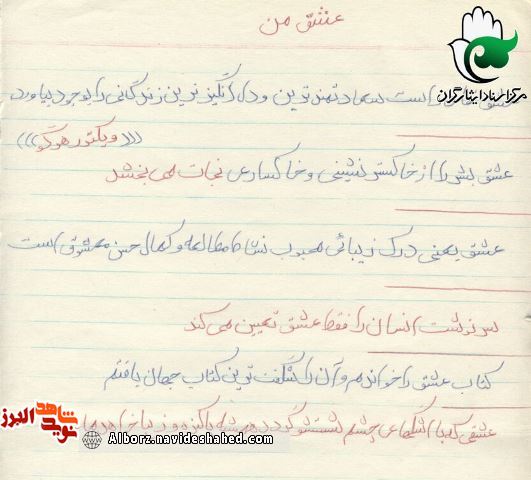 عشق من
مرکز اسناد ایثارگران
عشق قادر است سعادتمندترین و دل انگیزترین زندگانی را بوجود بیاورد
(((ویکتور هوگو)))
عشق بشر را از خاکستر نشینی و خاکساری نجات می بخشد
عشق یعنی درک زیبائی محبوب نشاط مطالعه و کمال حسن معشوق است
سرنوشت انسان را فقط عشق تعیین می کند
کتاب عشق را خواندم و آن را شگفت ترین کتاب جهان یافتم
عشقی که با اشکهای چشم شستشو گردد همیشه پاکیزه و زیبا خواهد ماند
نوید شاهد البرز
Alborz.navideshahed.com